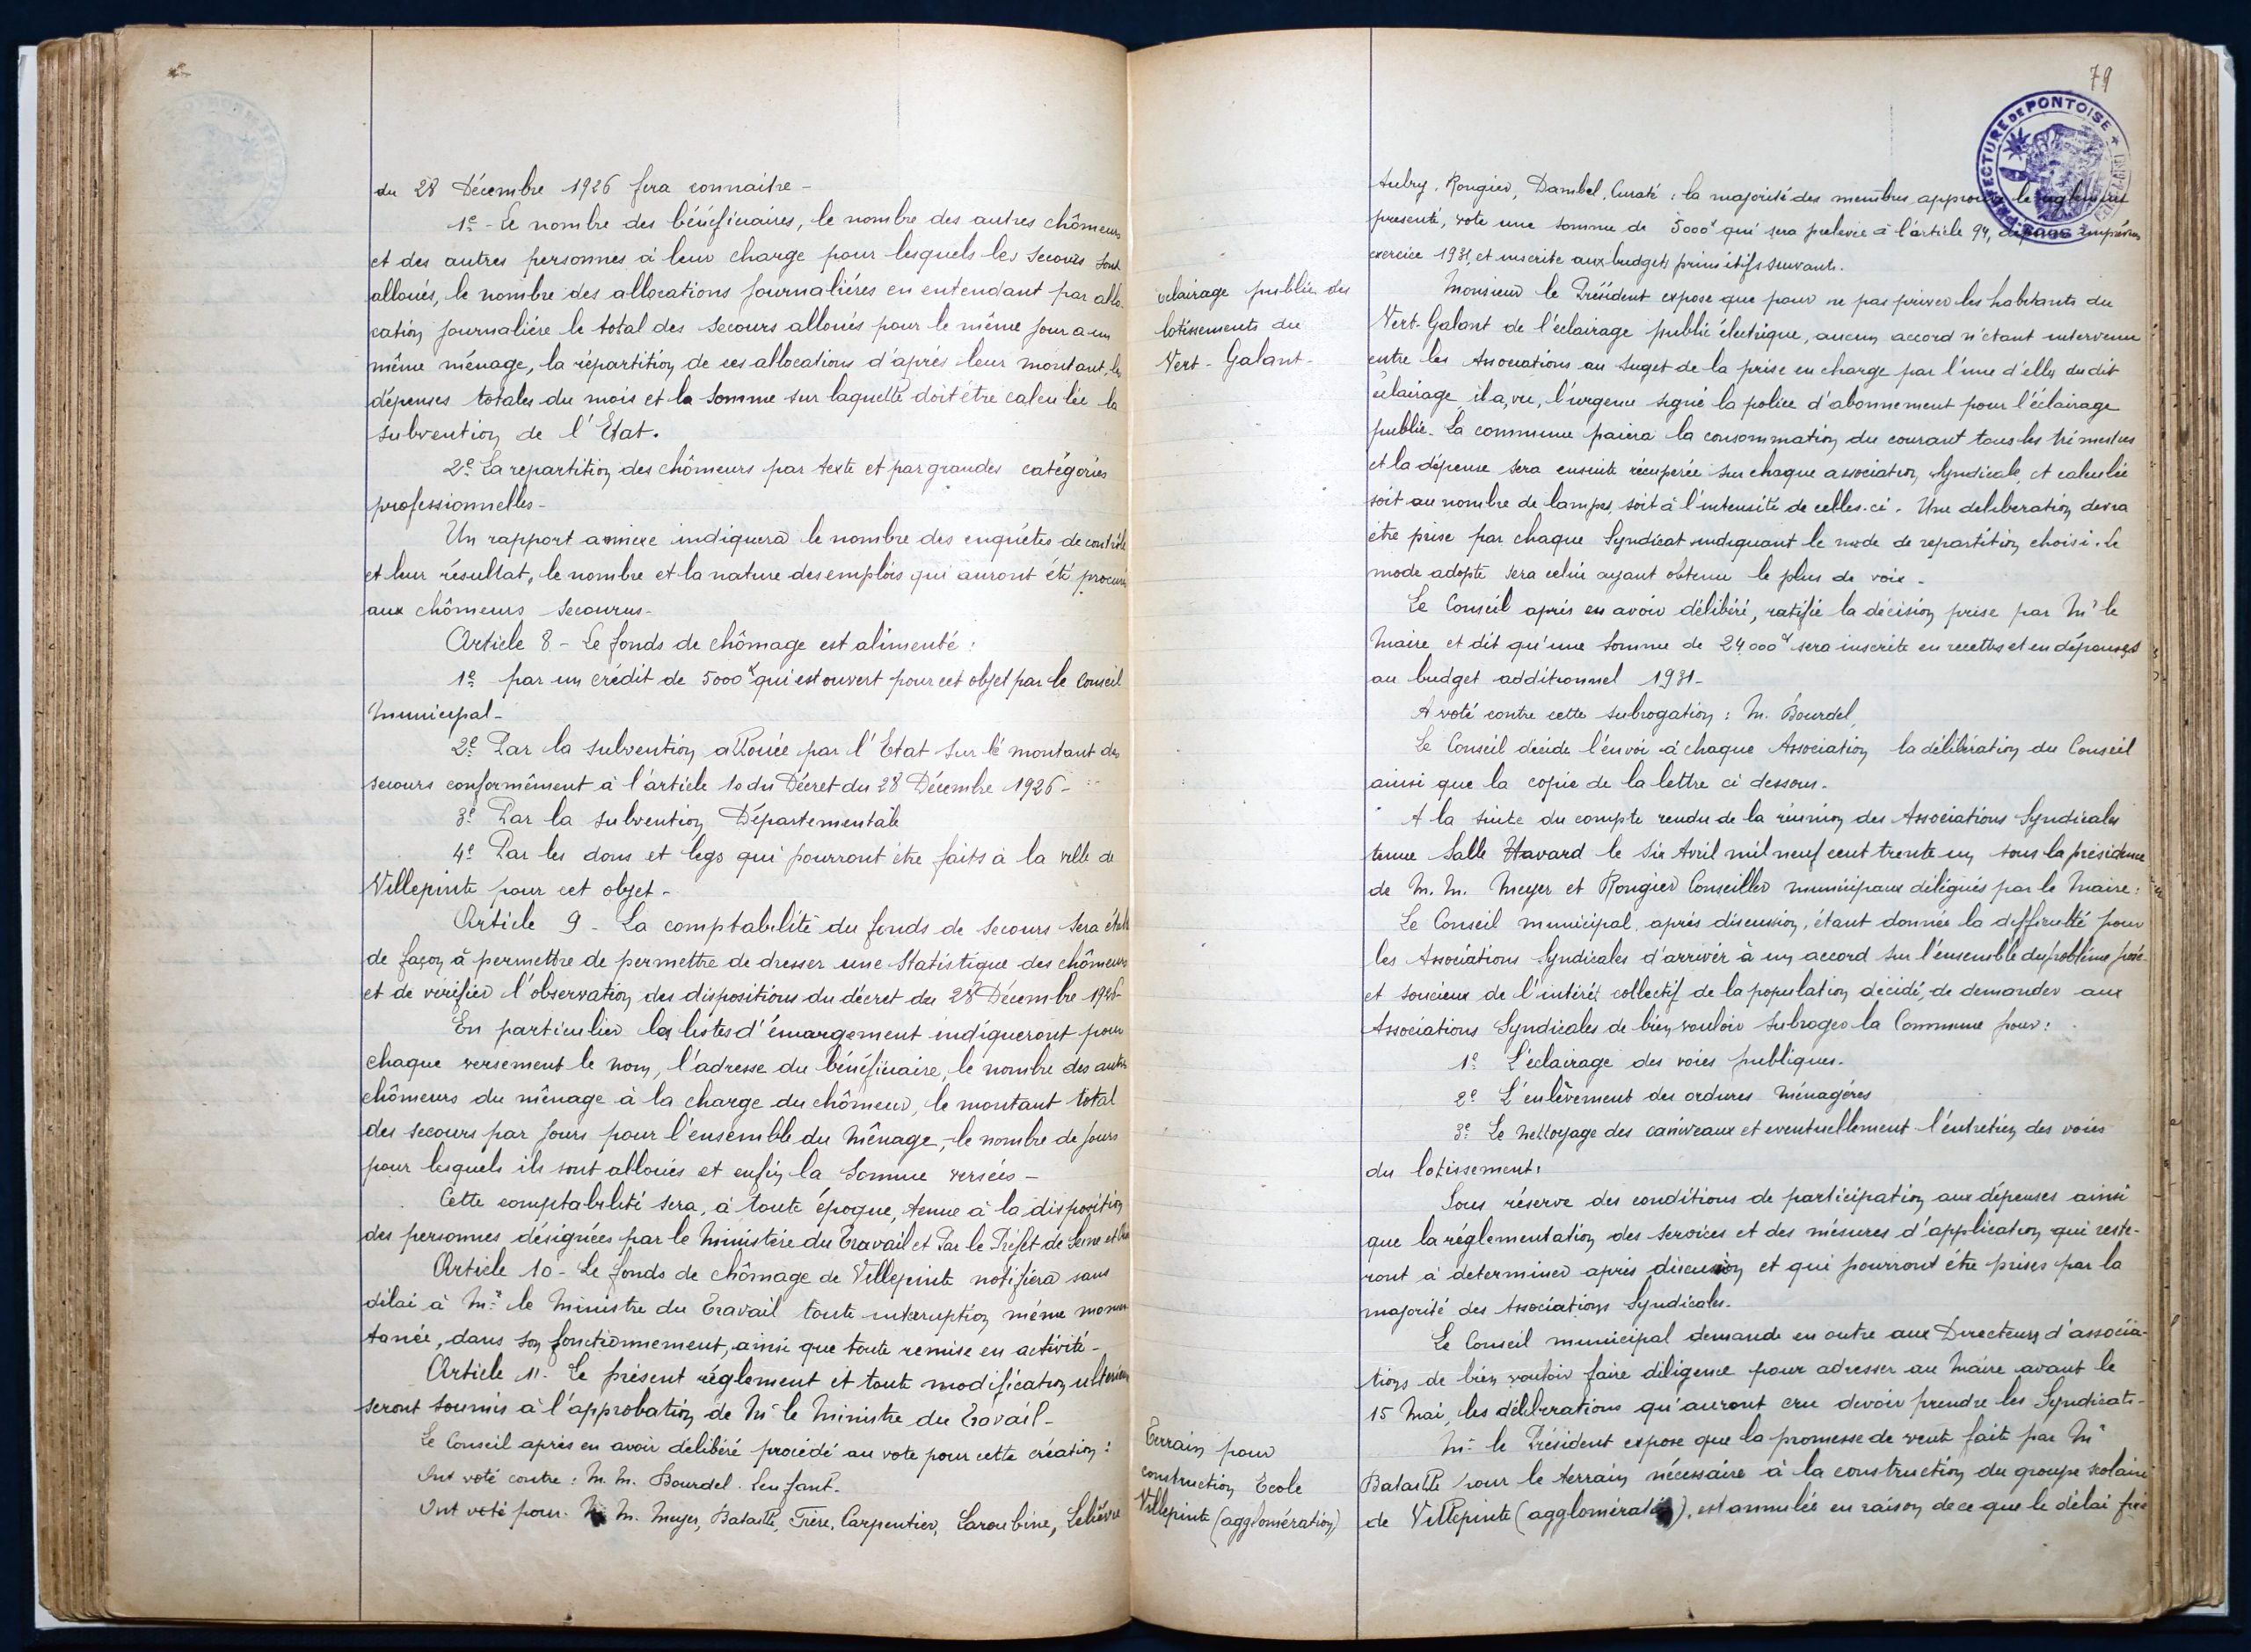 du 28 Décembre 1926 fera connaitre -
1e - Le nombre des bénéficiaires, le nombre des autres chômeurs
et des autres personnes à leur charge pour lesquels les secours sont
alloués, le nombre des allocations journalières en entendant par allo-
cation journalière le total des secours alloués pour le même jour a un
même ménage, la répartition de ces allocations d'après leur montant, les
dépenses totales du mois et la somme sur laquelle doit être calculée la
subvention de l'Etat.
2e La repartition des chômeurs par sexte et par grandes catégories
professionnelles -
Un rapport annexe indiquera le nombre des enquêtes de contrôle
et leur résultat, le nombre et la nature des emplois qui auront été procurés
aux chômeurs secourus -
Article 8 - Le fonds de chômage est alimenté :
1e par un crédit de 5000f qui est ouvert pour cet objet par le Conseil
Municipal -
2e Par la subvention allouée par l'Etat sur le montant des
secours conformément à l'article 10 du Décret du 28 Décembre 1926 -
3e Par la subvention Départementale
4e Par les dons et legs qui pourront être faits à la ville de
Villepinte pour cet objet -
Article 9 - La comptabilité du fonds de secours sera établi
de façon à permettre de permettre de dresser une Statistique des chômeurs
et de vérifier l'observation des dispositions du décret du 28 Décembre 1926 -
En particulier les listes d'émargement indiqueront pour
chaque versement le nom, l'adresse du bénéficiaire, le nombre des autres
chômeurs du ménage à la charge du chômeur, le montant total
des secours par jours pour l'ensemble du Ménage, le nombre de jours
pour lesquels ils sont alloués et enfin la somme versées -
Cette comptabilité sera, à toute époque, tenue à la disposition
des personnes désignées par le Ministère du Travail et Par le Préfet de Seine et Oise
Article 10 - Le fonds de chômage de Villepinte notifiera sans
délai à Mr le Ministre du Travail toute interruption même momen
tanée, dans son fonctionnement, ainsi que toute remise en activité -
Article 11 - Le présent réglement et toute modification ultérieure
seront soumis à l'approbation de Mr le Ministre du Travail -
Le Conseil après en avoir délibéré procédé au vote pour cette création :
Ont voté contre : M. M. Bourdel. Lenfant.
Ont voté pour. M. M. Meyer, Bataille, Frère, Carpentier, Laroubine, Lelièvre
79
SOUS-PREFECTURE DE PONTOISE
Aubry, Rougier, Dambel, Curaté : la majorité des membres approuve le règlement
presenté, vote une somme de 5000f qui sera prelevée à l'article 94, dépenses imprévues
exercice 1931, et inscrite aux budgets primitifs suivants.
éclairage public des
lotissements du
Vert - Galant -
Monsieur le Président expose que pour ne pas priver les habitants du
Vert-Galant de l'éclairage public électrique, aucun accord n'étant intervenu
entre les Associations au suget de la prise en charge par l'une d'elles du dit
éclairage il a, vu, l'urgence signé la police d'abonnement pour l'éclairage
public. La commune paiera la consommation du courant tous les trimestres
et la dépense sera ensuite récuperée sur chaque association Syndicale, et calculée
soit au nombre de lampes, soit à l'intensité de celles-ci. Une deliberation devra
être prise par chaque Syndicat indiquant le mode de repartition choisi. Le
mode adopté sera celui ayant obtenu le plus de voix -
Le Conseil après en avoir délibéré, ratifie la décision prise par Mr le
Maire et dit qu'une somme de 24.000f sera inscrite en recettes et en dépenses
au budget additionnel 1931 -
A voté contre cette subrogation : M. Bourdel,
Le Conseil décide l'envoi à chaque Association la délibération du Conseil
ainsi que la copie de la lettre ci dessous.
A la suite du compte rendu de la réunion des Associations Syndicales
tenue Salle Havard le six Avril mil neuf cent trente un sous la présidence
de M. M. Meyer et Rougier Conseiller municipaux délégués par le Maire :
Le Conseil municipal, après discussion, étant donnée la difficulté pour
les Associations Syndicales d'arriver à un accord sur l'ensemble du problème posé -
et soucieux de l'intérêt collectif de la population décidé, de demander aux
Associations Syndicales de bien vouloir subroger la Commune pour :
1e L'éclairage des voies publiques.
2e L'enlèvement des ordures ménagères
3e Le nettoyage des caniveaux et eventuellement l'entretien des voies
du lotissement.
Sous réserve des conditions de participation aux dépenses ainsi
que la réglementation des services et des mésures d'application qui reste-
ront à determiner après discussion et qui pourront être prises par la
majorité des Associations Syndicales.
Le Conseil municipal demande en outre aux Directeurs d'associa-
tions de bien vouloir faire diligence pour adresser au Maire avant le
15 Mai, les délibérations qu'auront cru devoir prendre les Syndicats -
Terrain pour
construction Ecole
Villepinte (agglomération)
Mr le Président expose que la promesse de vente faite par Mr
Bataille pour le terrain nécessaire à la construction du groupe scolaire
de Villepinte (agglomération), est annulée en raison de ce que le délai fixé